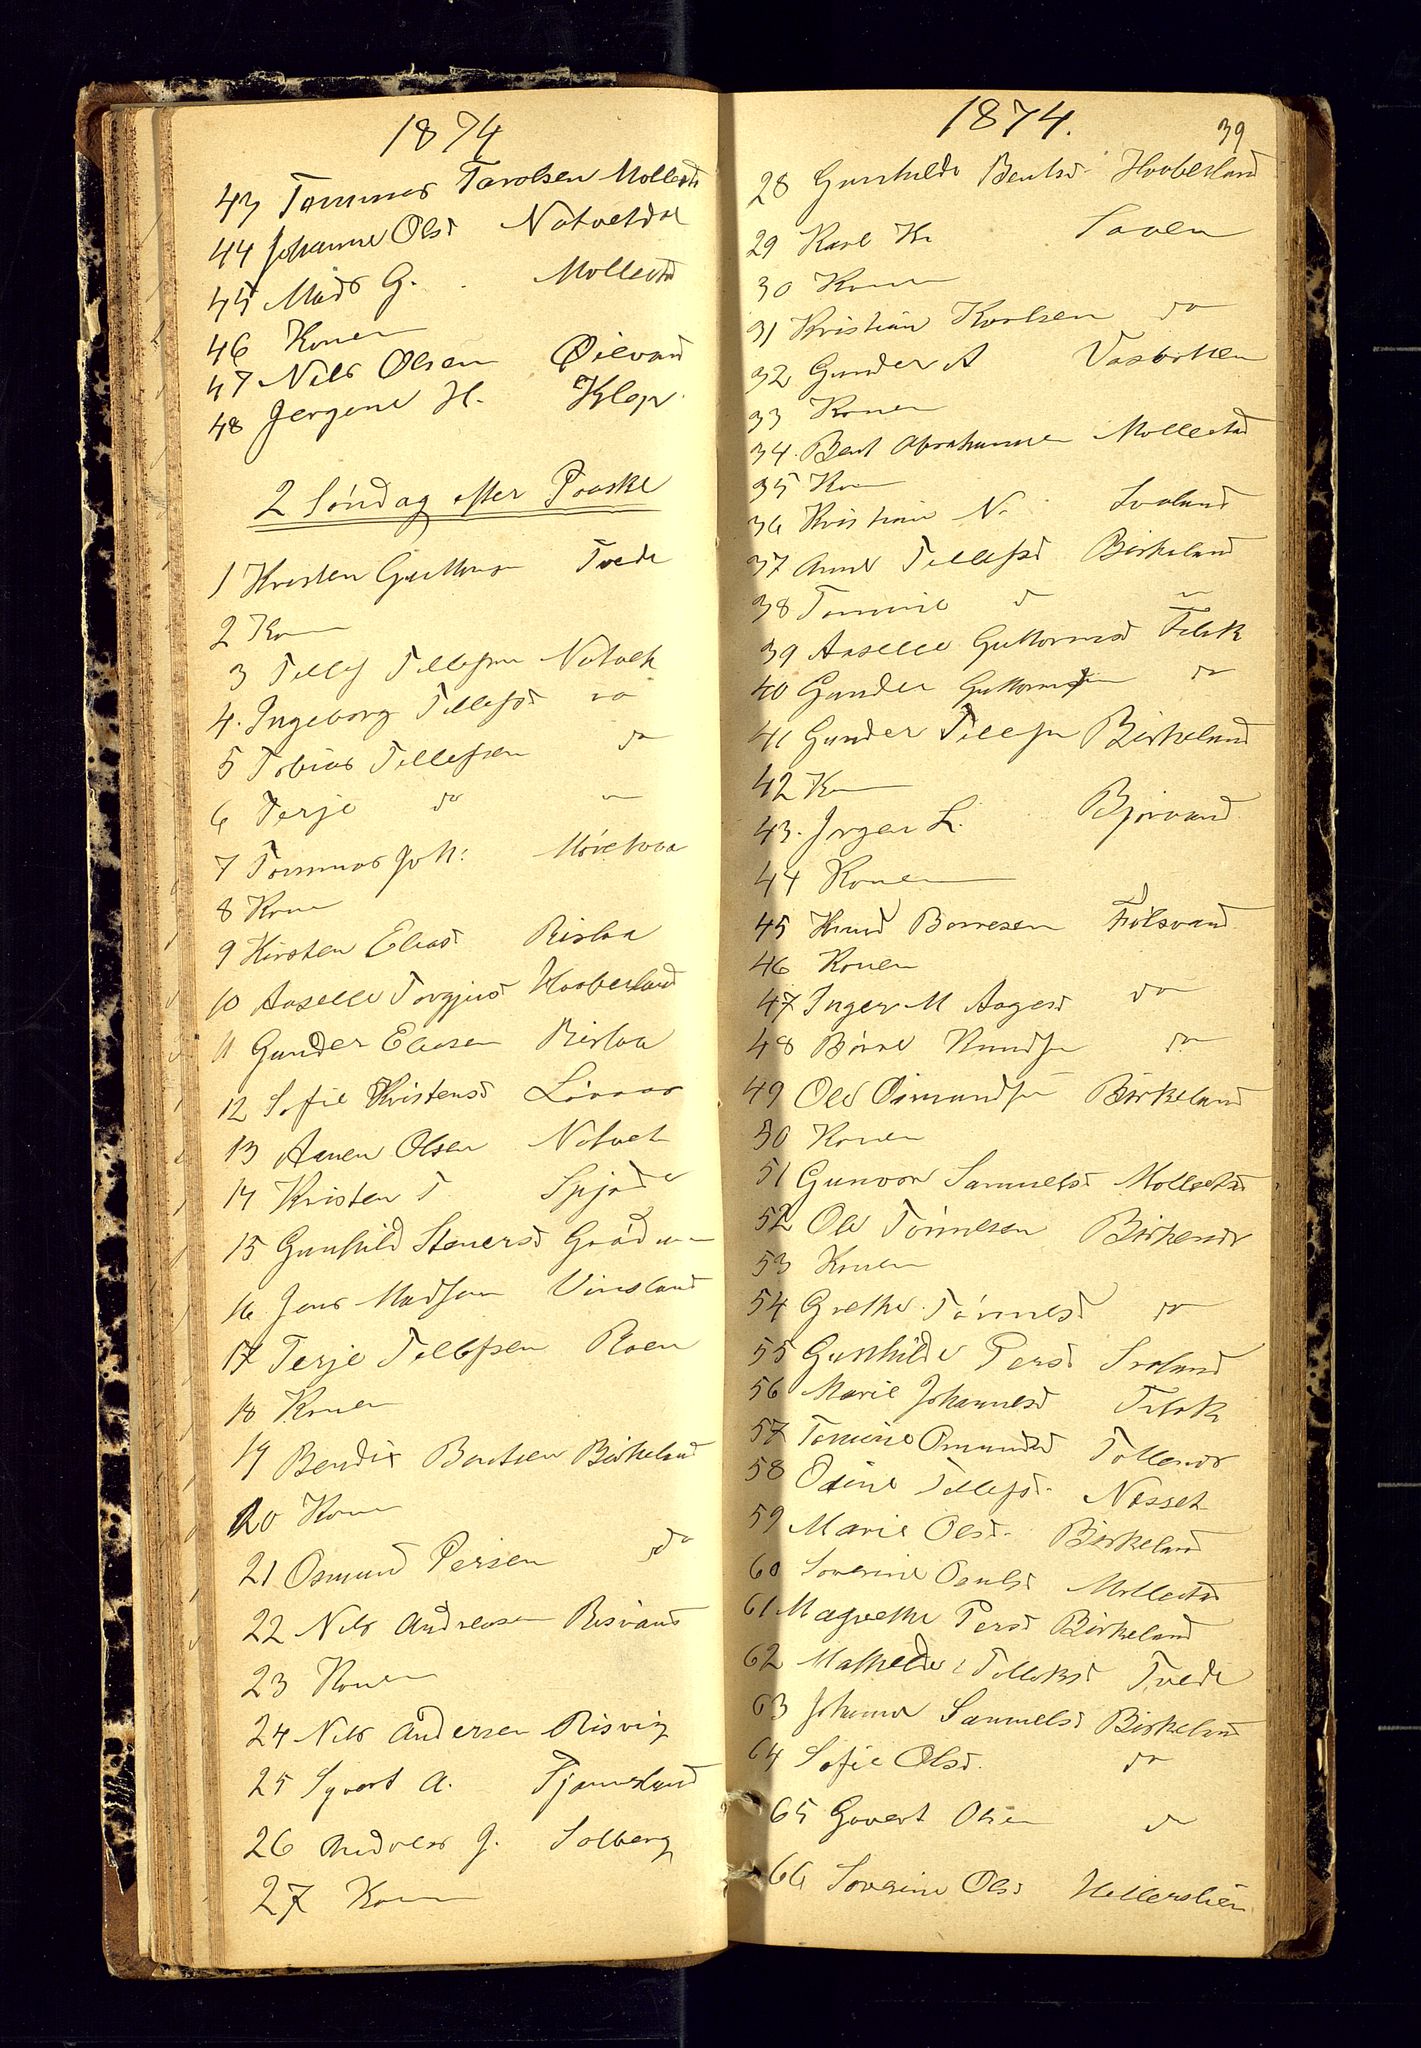 1874
43 Tommas Tarolsen Mollestd
44 Johanne Olsd Natvetdal
45 Mads G. Mollestd
46 Konen
47 Nils Olsen Øilvand
48 Jergine H. Klep
2 Søndag efter Paaske
1 Kristen Guttormsen Tvede
2 Kon
3 Tellef Tellefsen Natvet
4. Ingeborg Tellefsd do
5 Tobias Tellefsen do
6 Terje do "
7 Tommas Joh:
8 Kone
9 Kirsten Eliasd Rislaa
10 Aaselle Torgjusd Haaberland
11 Gunder Eliesen Rislaa
12 Sofie Kristensd
13 Aanen Olsen Natvet
14 Kristen T
15 Gunhild Stenersd
16 Jens Madsen Vinsland
17 Terje Tellefsen Roen
18 Konen
19 Bendix Bentsen Birkeland
20 Kone
21 Osmund Persen do
22 Nils Andreasen Risvand
23 Konen
24 Nils Andersen Risvig
25 Syvert A. Tjomsland
26 Andreas J. Solberg
27 Kone
1874. 39
28 Gunhilde Bentsd Haaberland
29 Karl Kr
30 Konen
31 Kristian Karlsen do
32 Gunder A Vasbotten
33 Konen
34. Bent Abrahamsen Mollestad
35 Kon
36 Kristian N. Svaland
37 Anne Tellefsd Birkeland
38 Tomine d "
39 Aaselle Guttormsd
40 Gunder Guttormsen do
41 Gunder Tellefsen Birkeland
42 Kon
43. Jørgen L. Bjorvand
44 Konen
45 Knud Børresen
46 Konen
47 Inger M Aagesd do
48 Børre Knudsen do
49 Ole Osmundsen Birkeland
50 Konen
51 Gunvor Samuelsd Mollestad
52 Ole Tønnesen Birkenes
53 Konen
54 Grethe Tønnesd do
55 Gunhilde Persd Svaland
56 Marie Johannesd
57 Tomine Omundsd
58 Osine Tellefsd Næsset
59 Marie Olsd. Birkeland
60 Soverine Paulsd Mollestad
61 Magrethe Persd Birkeland
62 Mathilde Tellefsd Tvede
63 Johanne Samuelsd Birkeland
64 Sofie Olsd. do
65 Govert Olsen do
66 Soverine Olsd